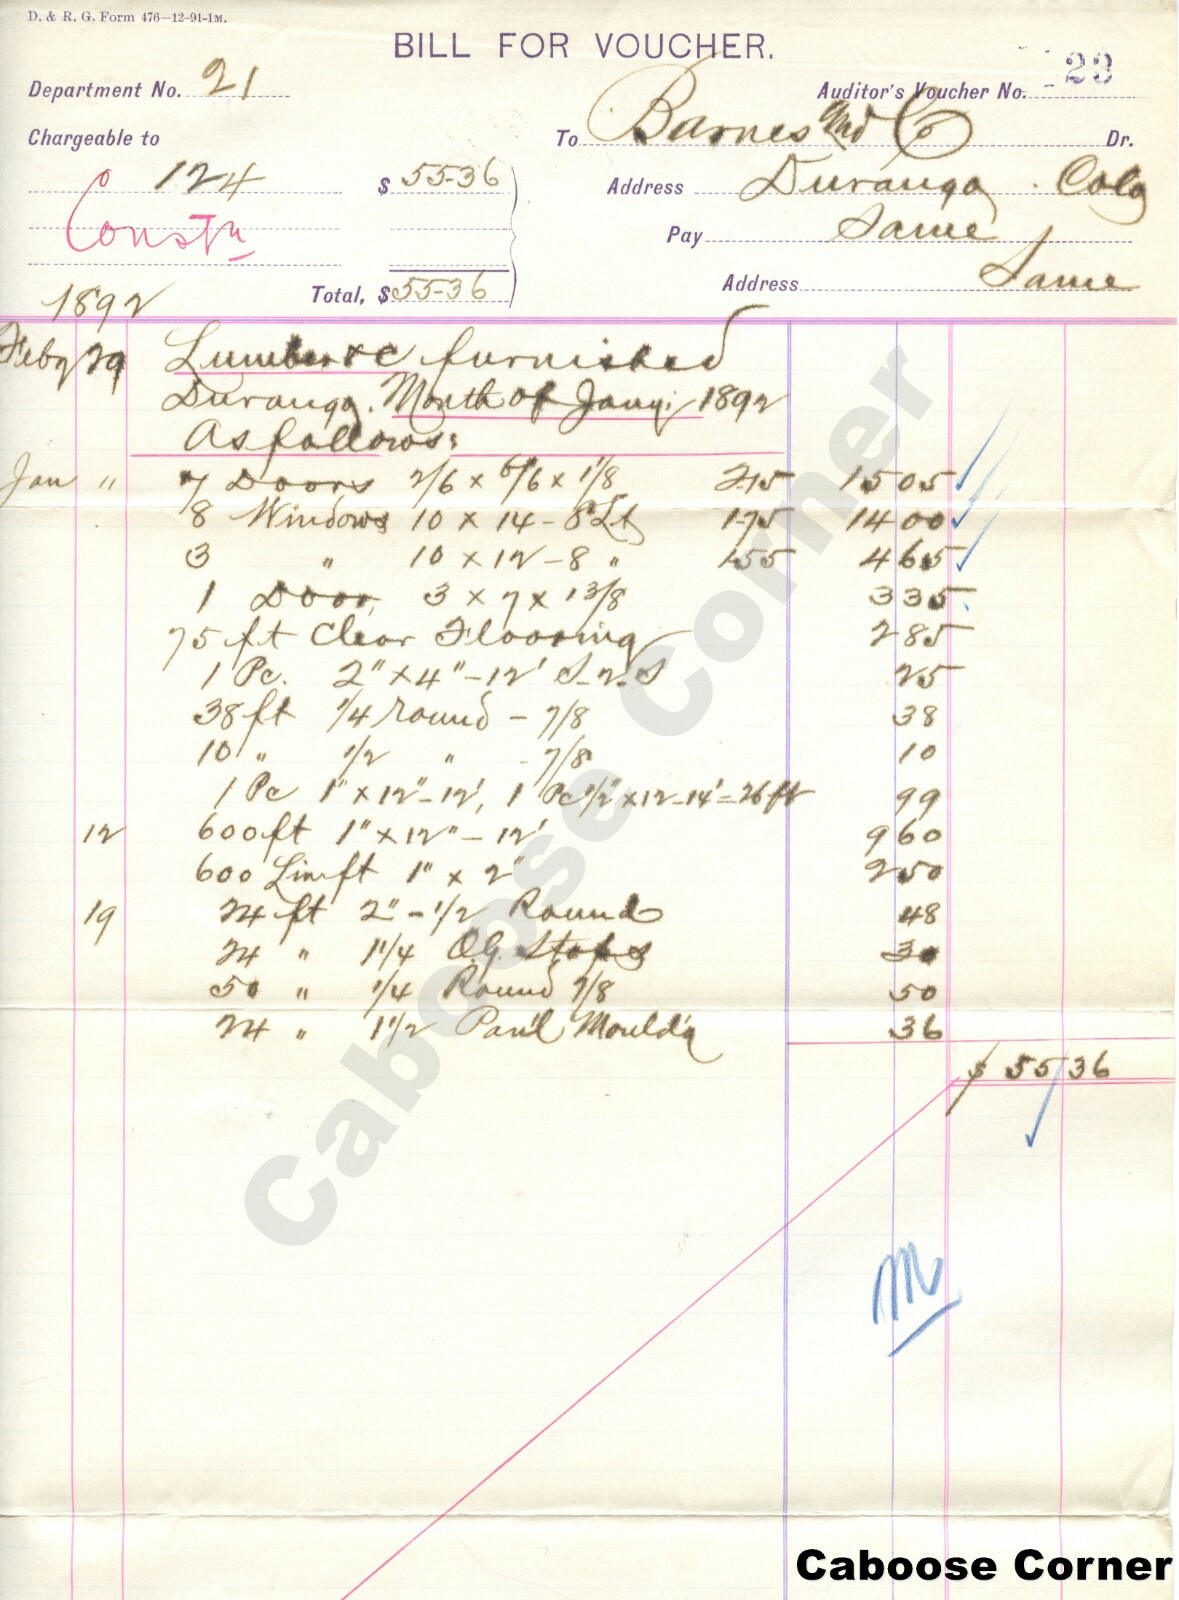 D. & R. G. Form 476—12-91-1M.
BILL FOR VOUCHER.
Department No. 21
Auditor's Voucher No. 23
Chargeable to
To Barnes and Co Dr.
124 $ 55-36
Address Durango. Colo
Constn
Pay Same
Address Same
1892 Total, $ 55-36
Feby 29 Lumber &c furnished
Durango. Month of Jany; 1892
As follows:
Jan " 7 Doors 2/6 x 6/6 x 1 1/8 2 15 15 05
8 Windows 10 x 14 - 8 Lt 1-75 14 00
3 " 10 x 12 - 8 " 1.55 4 65
1 Door, 3 x 7 x 1 3/8 3 35
75 ft Clear Flooring 2 85
1 Pc. 2" x 4" - 12' S-2-S 25
38 ft 1/4 round - 7/8 38
10 " 1/2 " - 7/8 10
1 Pc 1" x 12" - 12', 1 Pc 1/2" x 12 - 14' = 26 ft 99
12 600 ft 1" x 12" - 12' 9 60
600 Lin ft 1" x 2" 2 50
19 24 ft 2" - 1/2 Round 48
24 " 1 1/4 O.G. Stops 30
50 " 1/4 Round 7/8 50
24 " 1 1/2 Pan'l Mould'g 36
$ 55 36
M
Caboose Corner
Caboose Corner